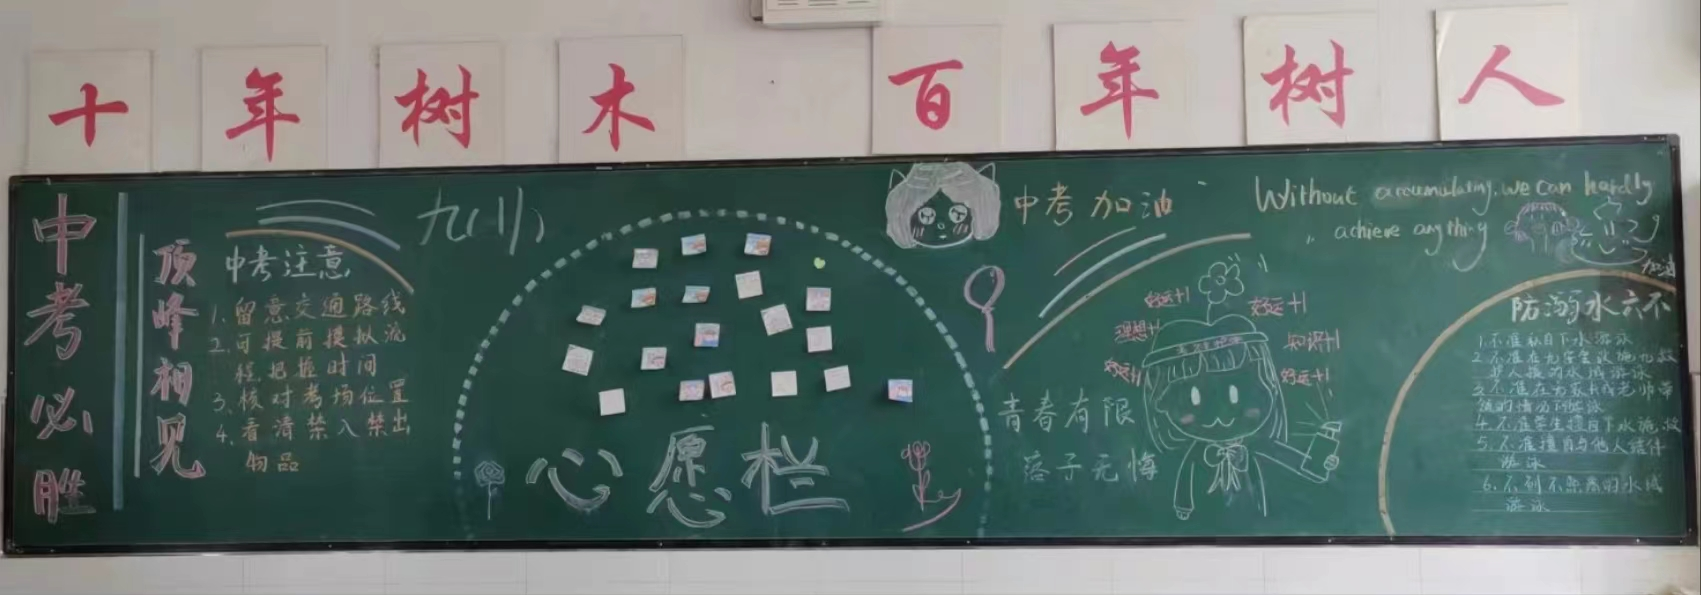 十年树木 百年树人
中考必胜
顶峰相见
中考注意
1、留意交通路线
2、可提前模拟流
程,把握时间
3、核对考场位置
4、看清禁入禁出
物品
九(1)
心愿栏
中考加油
青春有限
落子无悔
好运+1
理想+1
好运+1
好运+1
知识+1
好运+1
Without accumulating, we can hardly
achieve anything
加油
防溺水六不
1.不准私自下水游泳
2.不准在无安全设施、无救
护人员的水域游泳
3.不准在无家长或老师带
领的情况下游泳
4.不准学生擅自下水施救
5.不准擅自与他人结伴
游泳
6.不到不熟悉的水域
游泳